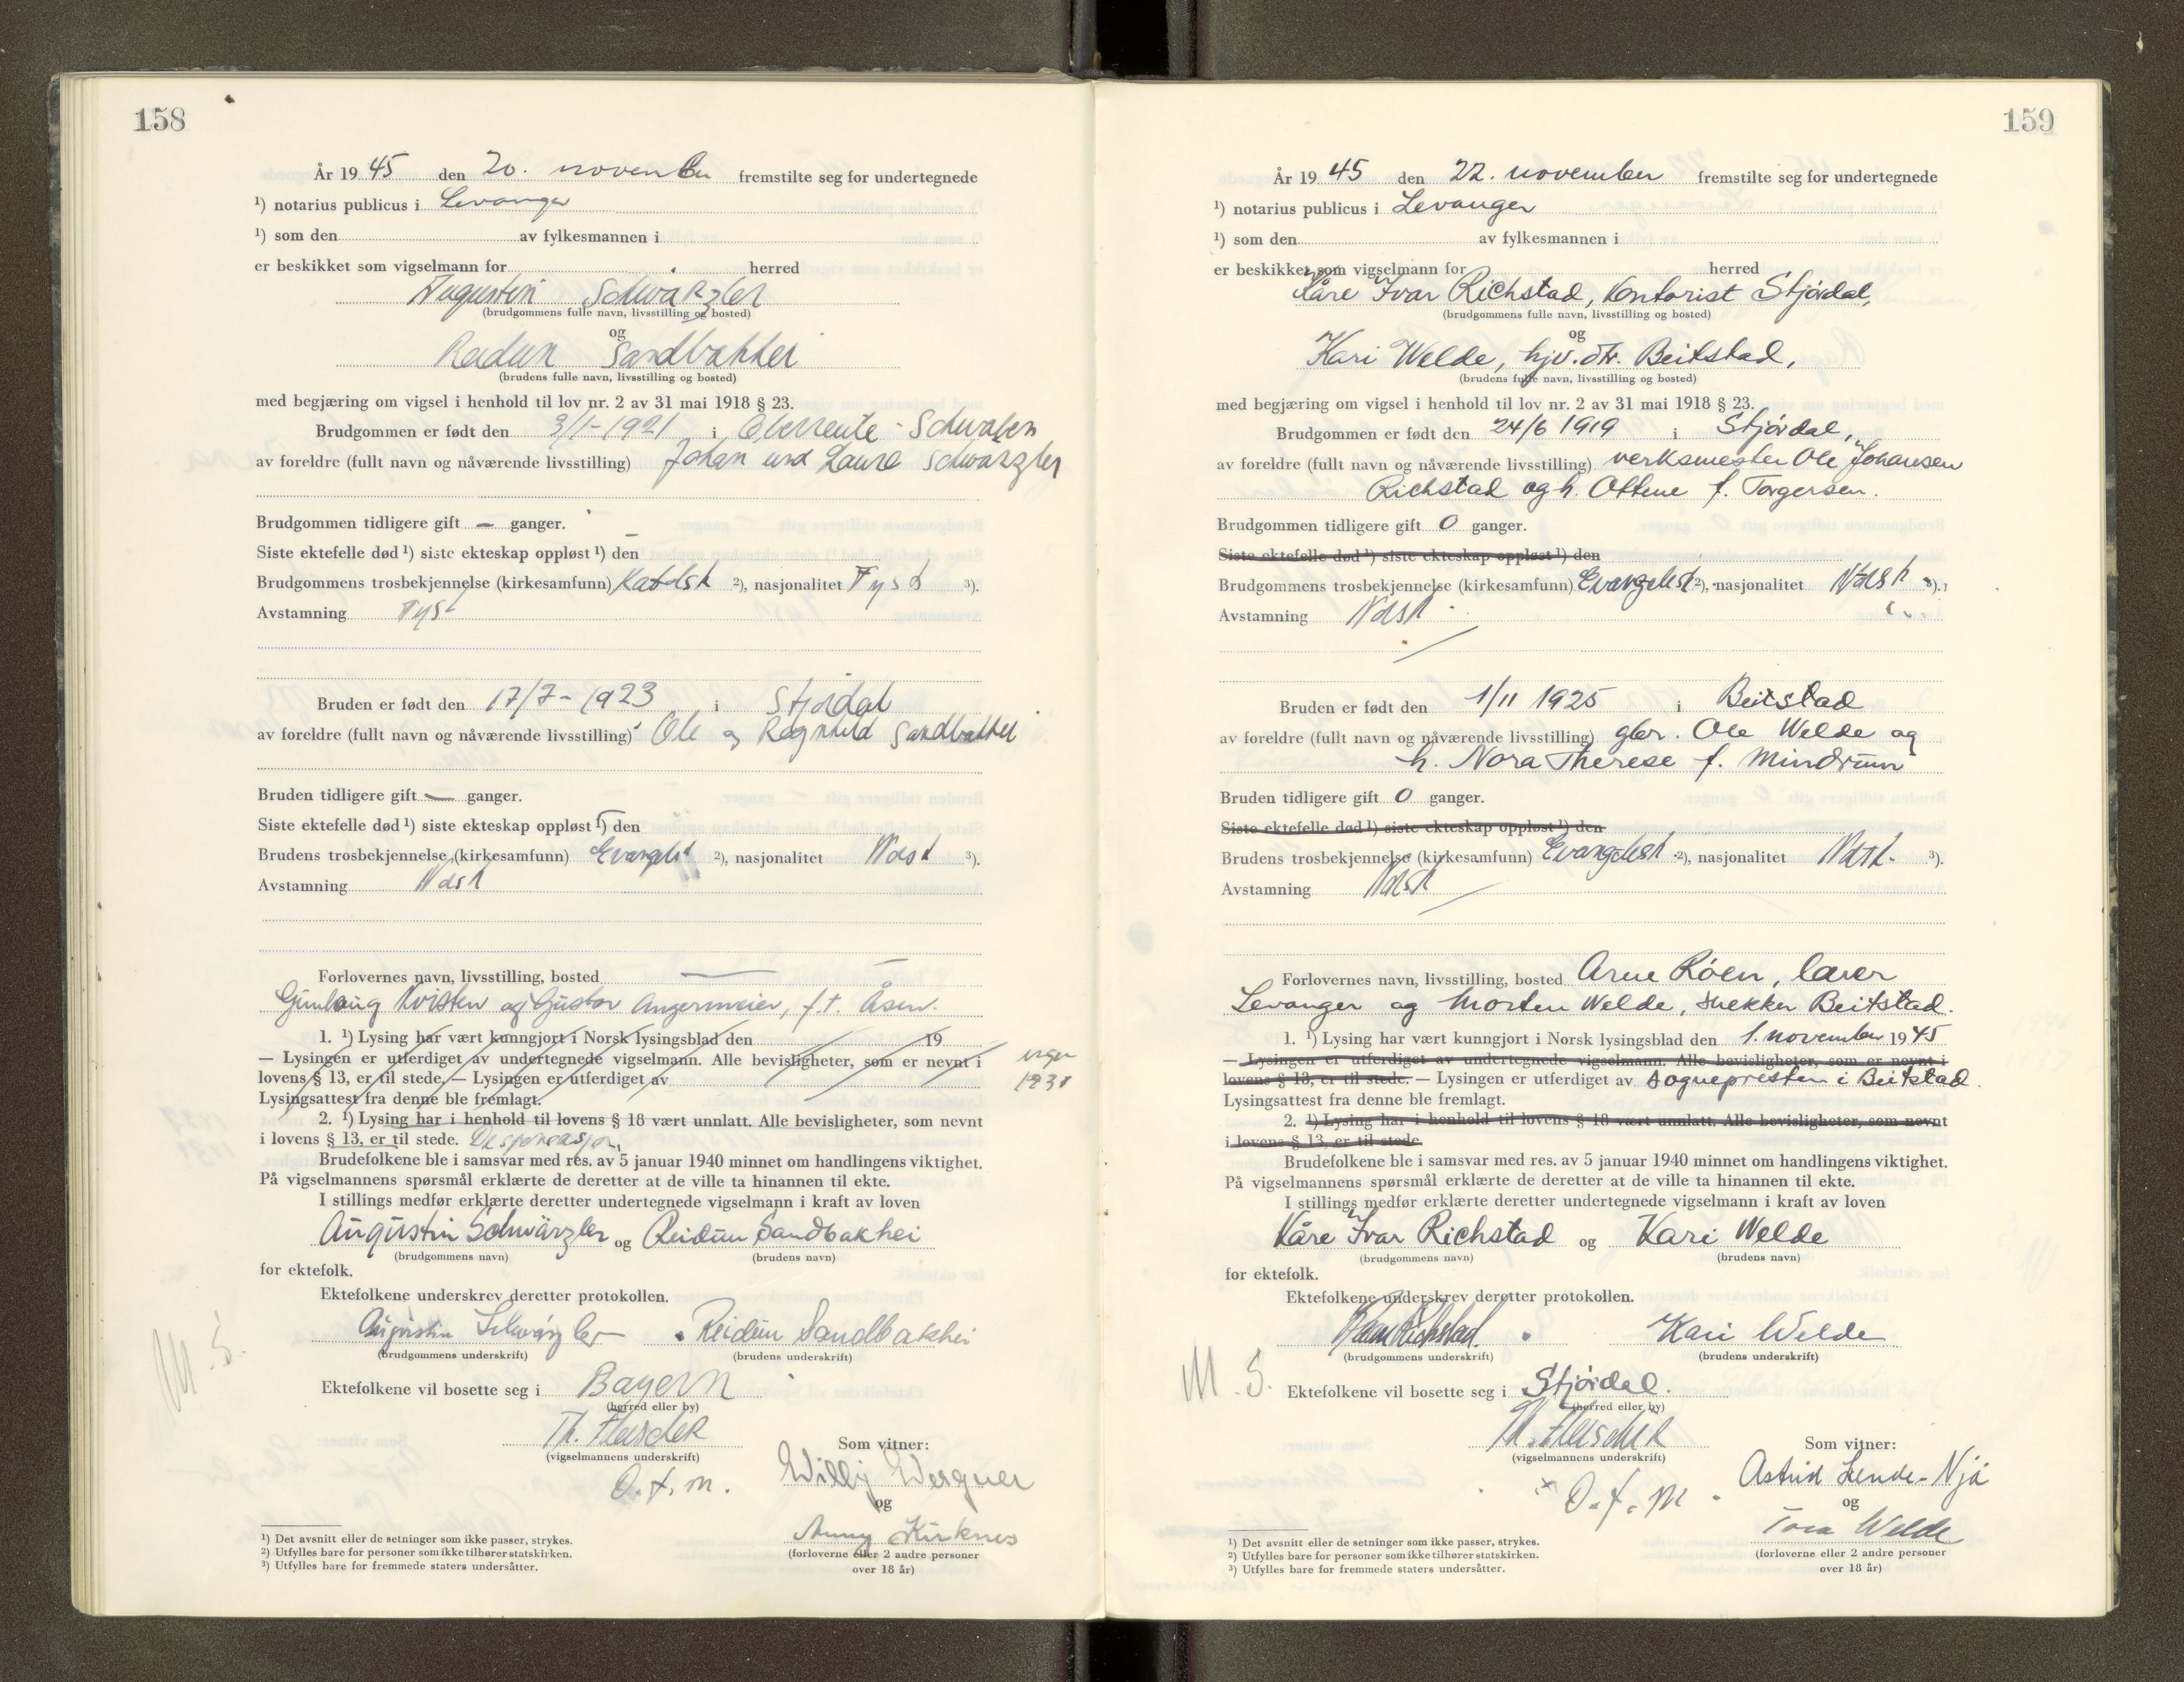 158
År 1945 den 20. november fremstilte seg for undertegnede
¹) notarius publicus i Levanger
¹) som den av fylkesmannen i
er beskikket som vigselmann for herred
Augustin Schwärzler
(brudgommens fulle navn, livsstilling og bosted)
og
Reidun Sandbakhei
(brudens fulle navn, livsstilling og bosted)
med begjæring om vigsel i henhold til lov nr. 2 av 31 mai 1918 § 23.
Brudgommen er født den 3/1-1921 i Oberreute - Schwaben
av foreldre (fullt navn og nåværende livsstilling) Johan und Laura Schwärzler
Brudgommen tidligere gift — ganger.
Siste ektefelle død ¹) siste ekteskap oppløst ¹) den —
Brudgommens trosbekjennelse (kirkesamfunn) Katolsk ²), nasjonalitet Tysk ³).
Avstamning Tysk
Bruden er født den 17/7-1923 i Stjørdal
av foreldre (fullt navn og nåværende livsstilling) Ole og Ragnhild Sandbakhei
Bruden tidligere gift — ganger.
Siste ektefelle død ¹) siste ekteskap oppløst ¹) den
Brudens trosbekjennelse (kirkesamfunn) Evangelisk ²), nasjonalitet Norsk ³).
Avstamning Norsk
Forlovernes navn, livsstilling, bosted
Gunlaug Kvisten og Gustav Angermeier, f.t. Åsen.
1. ¹) Lysing har vært kunngjort i Norsk lysingsblad den 19
— Lysingen er utferdiget av undertegnede vigselmann. Alle bevisligheter, som er nevnt i
lovens § 13, er til stede. — Lysingen er utferdiget av
Lysingsattest fra denne ble fremlagt.
2. ¹) Lysing har i henhold til lovens § 18 vært unnlatt. Alle bevisligheter, som nevnt
i lovens § 13, er til stede. Dispensasjon
Brudefolkene ble i samsvar med res. av 5 januar 1940 minnet om handlingens viktighet.
På vigselmannens spørsmål erklærte de deretter at de ville ta hinannen til ekte.
I stillings medfør erklærte deretter undertegnede vigselmann i kraft av loven
Augustin Schwärzler og Reidun Sandbakhei
(brudgommens navn) (brudens navn)
for ektefolk.
Ektefolkene underskrev deretter protokollen.
Augustin Schwärzler Reidun Sandbakhei
(brudgommens underskrift) (brudens underskrift)
M. S.
Ektefolkene vil bosette seg i Bayern
(herred eller by)
Th. Fleischer
(vigselmannens underskrift)
O. f. m.
Som vitner:
Willy Wergner
og
Anny Kirknes
(forloverne eller 2 andre personer
over 18 år)
¹) Det avsnitt eller de setninger som ikke passer, strykes.
²) Utfylles bare for personer som ikke tilhører statskirken.
³) Utfylles bare for fremmede staters undersåtter.
159
År 1945 den 22. november fremstilte seg for undertegnede
¹) notarius publicus i Levanger
¹) som den av fylkesmannen i
er beskikket som vigselmann for herred
Kåre Ivar Richstad, kontorist Stjørdal,
(brudgommens fulle navn, livsstilling og bosted)
og
Kari Welde, hjv. dtr. Beitstad,
(brudens fulle navn, livsstilling og bosted)
med begjæring om vigsel i henhold til lov nr. 2 av 31 mai 1918 § 23.
Brudgommen er født den 24/6 1919 i Stjørdal,
av foreldre (fullt navn og nåværende livsstilling) verksmester Ole Johansen
Richstad og h. Ottene f. Torgersen.
Brudgommen tidligere gift 0 ganger.
Siste ektefelle død ¹) siste ekteskap oppløst ¹) den
Brudgommens trosbekjennelse (kirkesamfunn) Evangelisk ²), nasjonalitet Norsk ³).
Avstamning Norsk
Bruden er født den 1/11 1925 i Beitstad
av foreldre (fullt navn og nåværende livsstilling) gbr. Ole Welde og
h. Nora Therese f. Mindrum
Bruden tidligere gift 0 ganger.
Siste ektefelle død ¹) siste ekteskap oppløst ¹) den
Brudens trosbekjennelse (kirkesamfunn) Evangelisk ²), nasjonalitet Norsk ³).
Avstamning Norsk
Forlovernes navn, livsstilling, bosted Arne Røen, lærer
Levanger og Morten Welde, snekker Beitstad.
1. ¹) Lysing har vært kunngjort i Norsk lysingsblad den 1. november 1945
— Lysingen er utferdiget av undertegnede vigselmann. Alle bevisligheter, som er nevnt i
lovens § 13, er til stede. — Lysingen er utferdiget av sognepresten i Beitstad.
Lysingsattest fra denne ble fremlagt.
2. ¹) Lysing har i henhold til lovens § 18 vært unnlatt. Alle bevisligheter, som nevnt
i lovens § 13, er til stede.
Brudefolkene ble i samsvar med res. av 5 januar 1940 minnet om handlingens viktighet.
På vigselmannens spørsmål erklærte de deretter at de ville ta hinannen til ekte.
I stillings medfør erklærte deretter undertegnede vigselmann i kraft av loven
Kåre Ivar Richstad og Kari Welde
(brudgommens navn) (brudens navn)
for ektefolk.
Ektefolkene underskrev deretter protokollen.
Kåre Richstad. Kari Welde
(brudgommens underskrift) (brudens underskrift)
M. S.
Ektefolkene vil bosette seg i Stjørdal.
(herred eller by)
Th. Fleischer
(vigselmannens underskrift)
O. f. m.
Som vitner:
Astrid Lende-Njå
og
Tora Welde
(forloverne eller 2 andre personer
over 18 år)
¹) Det avsnitt eller de setninger som ikke passer, strykes.
²) Utfylles bare for personer som ikke tilhører statskirken.
³) Utfylles bare for fremmede staters undersåtter.